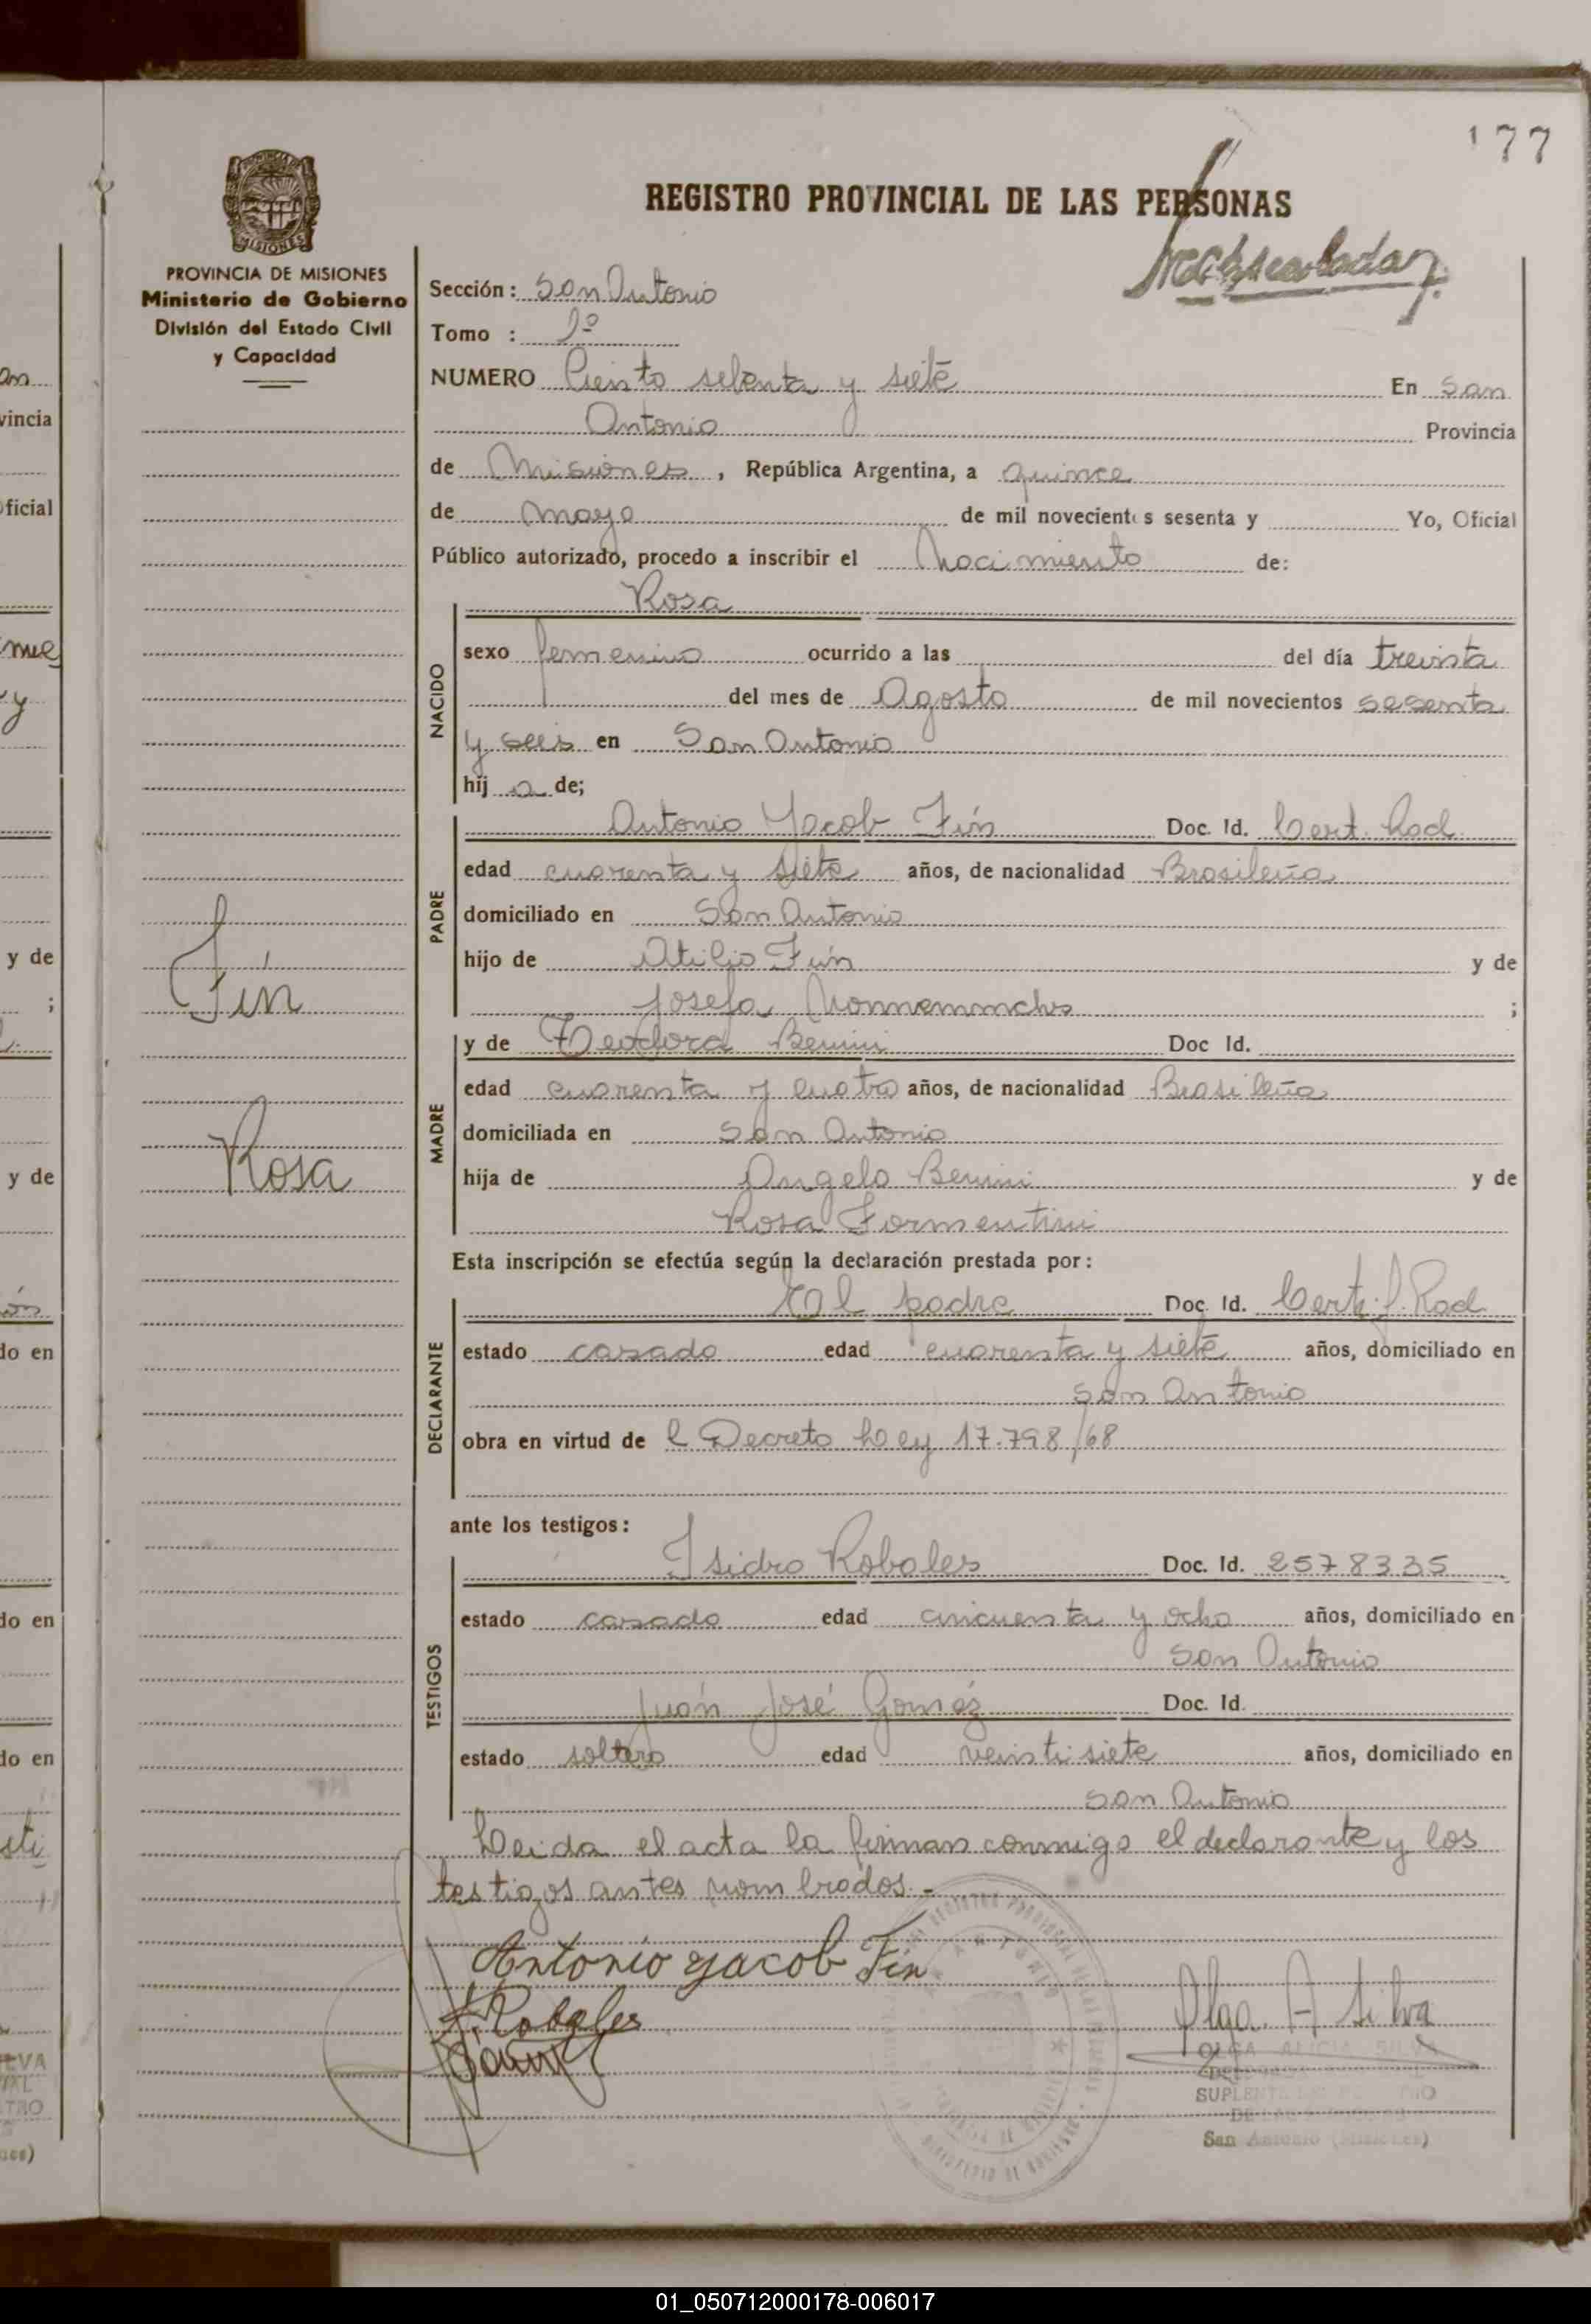 177
REGISTRO PROVINCIAL DE LAS PERSONAS
PROVINCIA DE MISIONES
Ministerio de Gobierno
División del Estado Civil
y Capacidad
Sección: San Antonio
Tomo : 1º
NUMERO Ciento setenta y siete En San
Antonio Provincia
de Misiones, República Argentina, a quince
de mayo de mil novecientos sesenta y Yo, Oficial
Público autorizado, procedo a inscribir el Nacimiento de:
Rosa
NACIDO
sexo femenino ocurrido a las del día treinta
del mes de Agosto de mil novecientos sesenta
y seis en San Antonio
hij a de;
PADRE
Antonio Yacob Fin Doc. Id. Cert. Rad
edad cuarenta y siete años, de nacionalidad Brasileña
domiciliado en San Antonio
hijo de Atilio Fin y de
Josefa ;
MADRE
y de Teodora Benini Doc Id.
edad cuarenta y cuatro años, de nacionalidad Brasileña
domiciliada en San Antonio
hija de Angelo Benini y de
Rosa Formentini
Fin
Rosa
Esta inscripción se efectúa según la declaración prestada por:
DECLARANTE
El padre Doc. Id. Cert. f. Rad
estado casado edad cuarenta y siete años, domiciliado en
San Antonio
obra en virtud de l Decreto Ley 17.798/68
ante los testigos:
TESTIGOS
Isidro Robales Doc. Id. 2578335
estado casado edad cincuenta y ocho años, domiciliado en
San Antonio
Juán José Goméz Doc. Id.
estado soltero edad veintisiete años, domiciliado en
San Antonio
Leida el acta la firman conmigo el declarante y los
testigos antes nombrados.-
Antonio Yacob Fin
Robales
Olga A Silva
OLGA ALICIA SILVA
SUPLENTE
San Antonio (Misiones)
01_050712000178-006017